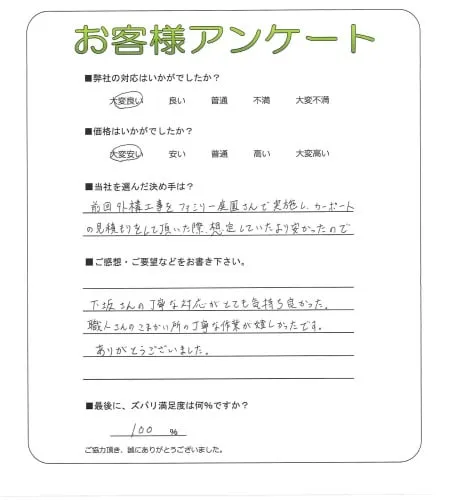 お客様アンケート
■弊社の対応はいかがでしたか？
大変良い 良い 普通 不満 大変不満
■価格はいかがでしたか？
大変安い 安い 普通 高い 大変高い
■当社を選んだ決め手は？
前回外構工事をファミリー庭園さんで実施し、カーポート
の見積もりをして頂いた際、想定していたより安かったので
■ご感想・ご要望などをお書き下さい。
下坂さんの丁寧な対応がとても気持ち良かった。
職人さんのこまかい所の丁寧な作業が嬉しかったです。
ありがとうございました。
■最後に、ズバリ満足度は何％ですか？
100 ％
ご協力頂き、誠にありがとうございました。